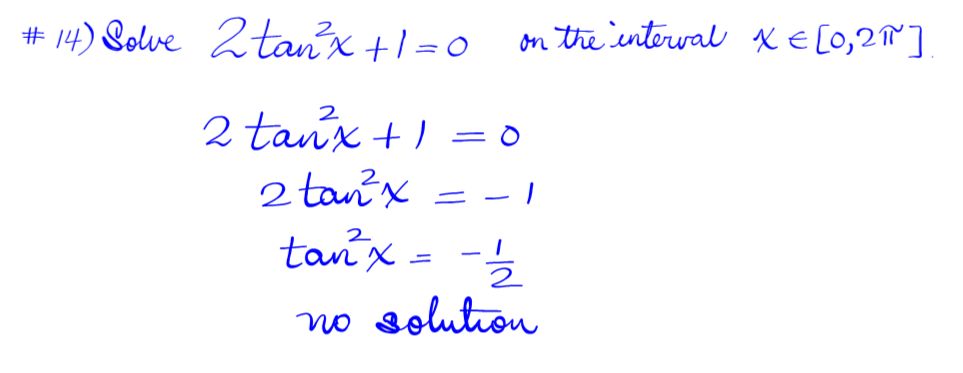 # 14) Solve 2tan²x + 1 = 0 on the interval x ∈ [0, 2π].
2 tan²x + 1 = 0
2 tan²x = - 1
tan²x = - 1/2
no solution